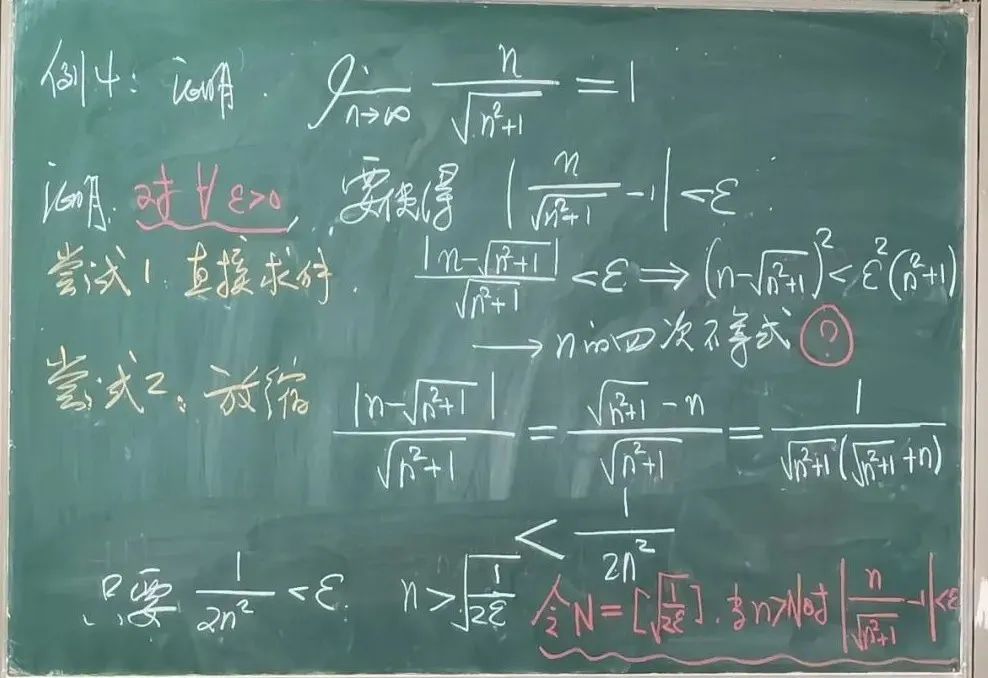 例4: 证明. lim_{n→∞} n/√(n²+1) = 1
证明. 对∀ε>0, 要使得 |n/√(n²+1) - 1| < ε.
尝试1. 直接求解. |n-√(n²+1)|/√(n²+1) < ε ⟹ (n-√(n²+1))² < ε²(n²+1)
⟶ n的四次不等式 ?
尝试2: 放缩 |n-√(n²+1)|/√(n²+1) = (√(n²+1) - n)/√(n²+1) = 1/(√(n²+1)(√(n²+1)+n))
< 1/(2n²)
只要 1/(2n²) < ε. n > √(1/(2ε)) 令N=[√(1/(2ε))]. 当n>N时 |n/√(n²+1) - 1| < ε